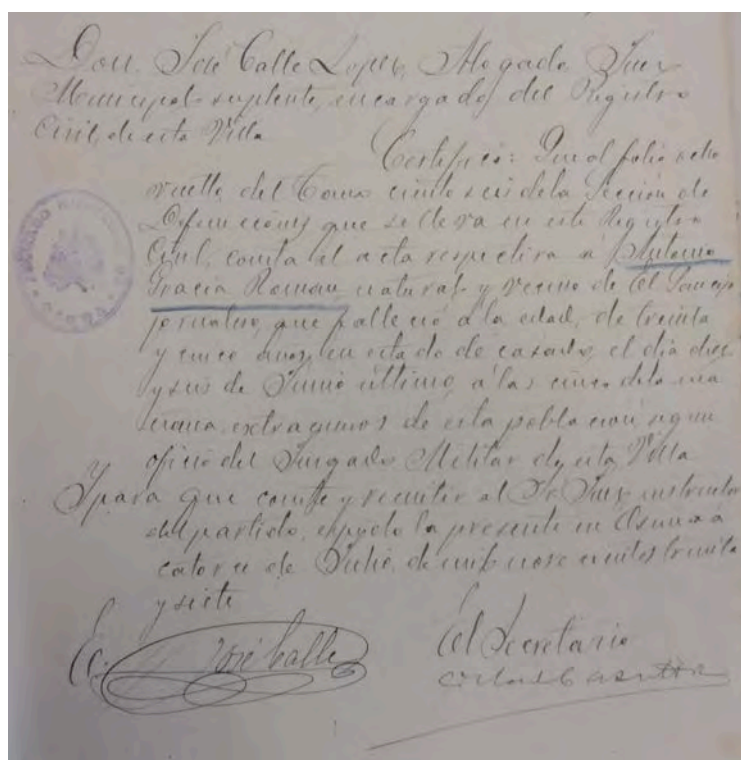 Don José Calle Lopez, Abogado Juez
Municipal suplente, encargado del Registro
Civil, de esta Villa
Certifico: Que al folio ocho
vuelto, del Tomo ciento seis de la Sección de
Defunciones que se lleva en este Registro
Civil, consta el acta respectiva a Antonio
Gracia Roman natural y vecino de El Saucejo
jornalero, que falleció a la edad, de treinta
y cinco años, en estado de casado, el día diez
y seis de Junio último, a las cinco de la ma
ñana, extramuros de esta población, según
oficio del Juzgado Militar de esta Villa
Y para que conste y remitir al Sr. Juez instructor
del partido, expido la presente en Osuna a
catorce de Julio, de mil novecientos treinta
y siete
José Calle
El Secretario